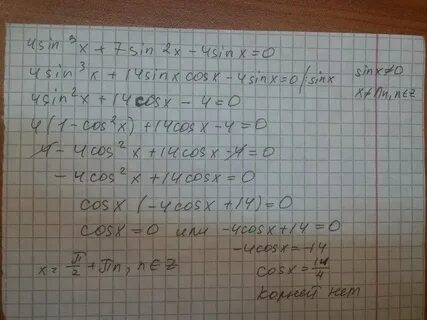 4sin³x + 7sin 2x - 4sinx = 0
4sin³x + 14sinx cosx - 4sinx = 0 / sinx sinx ≠ 0
4sin²x + 14cosx - 4 = 0 x ≠ Пn, n∈Z
4(1 - cos²x) + 14cosx - 4 = 0
4 - 4cos²x + 14cosx - 4 = 0
-4cos²x + 14cosx = 0
cosx (-4cosx + 14) = 0
cosx = 0 или -4cosx + 14 = 0
-4cosx = -14
x = П/2 + Пn, n∈Z cosx = 14/4
Корней нет